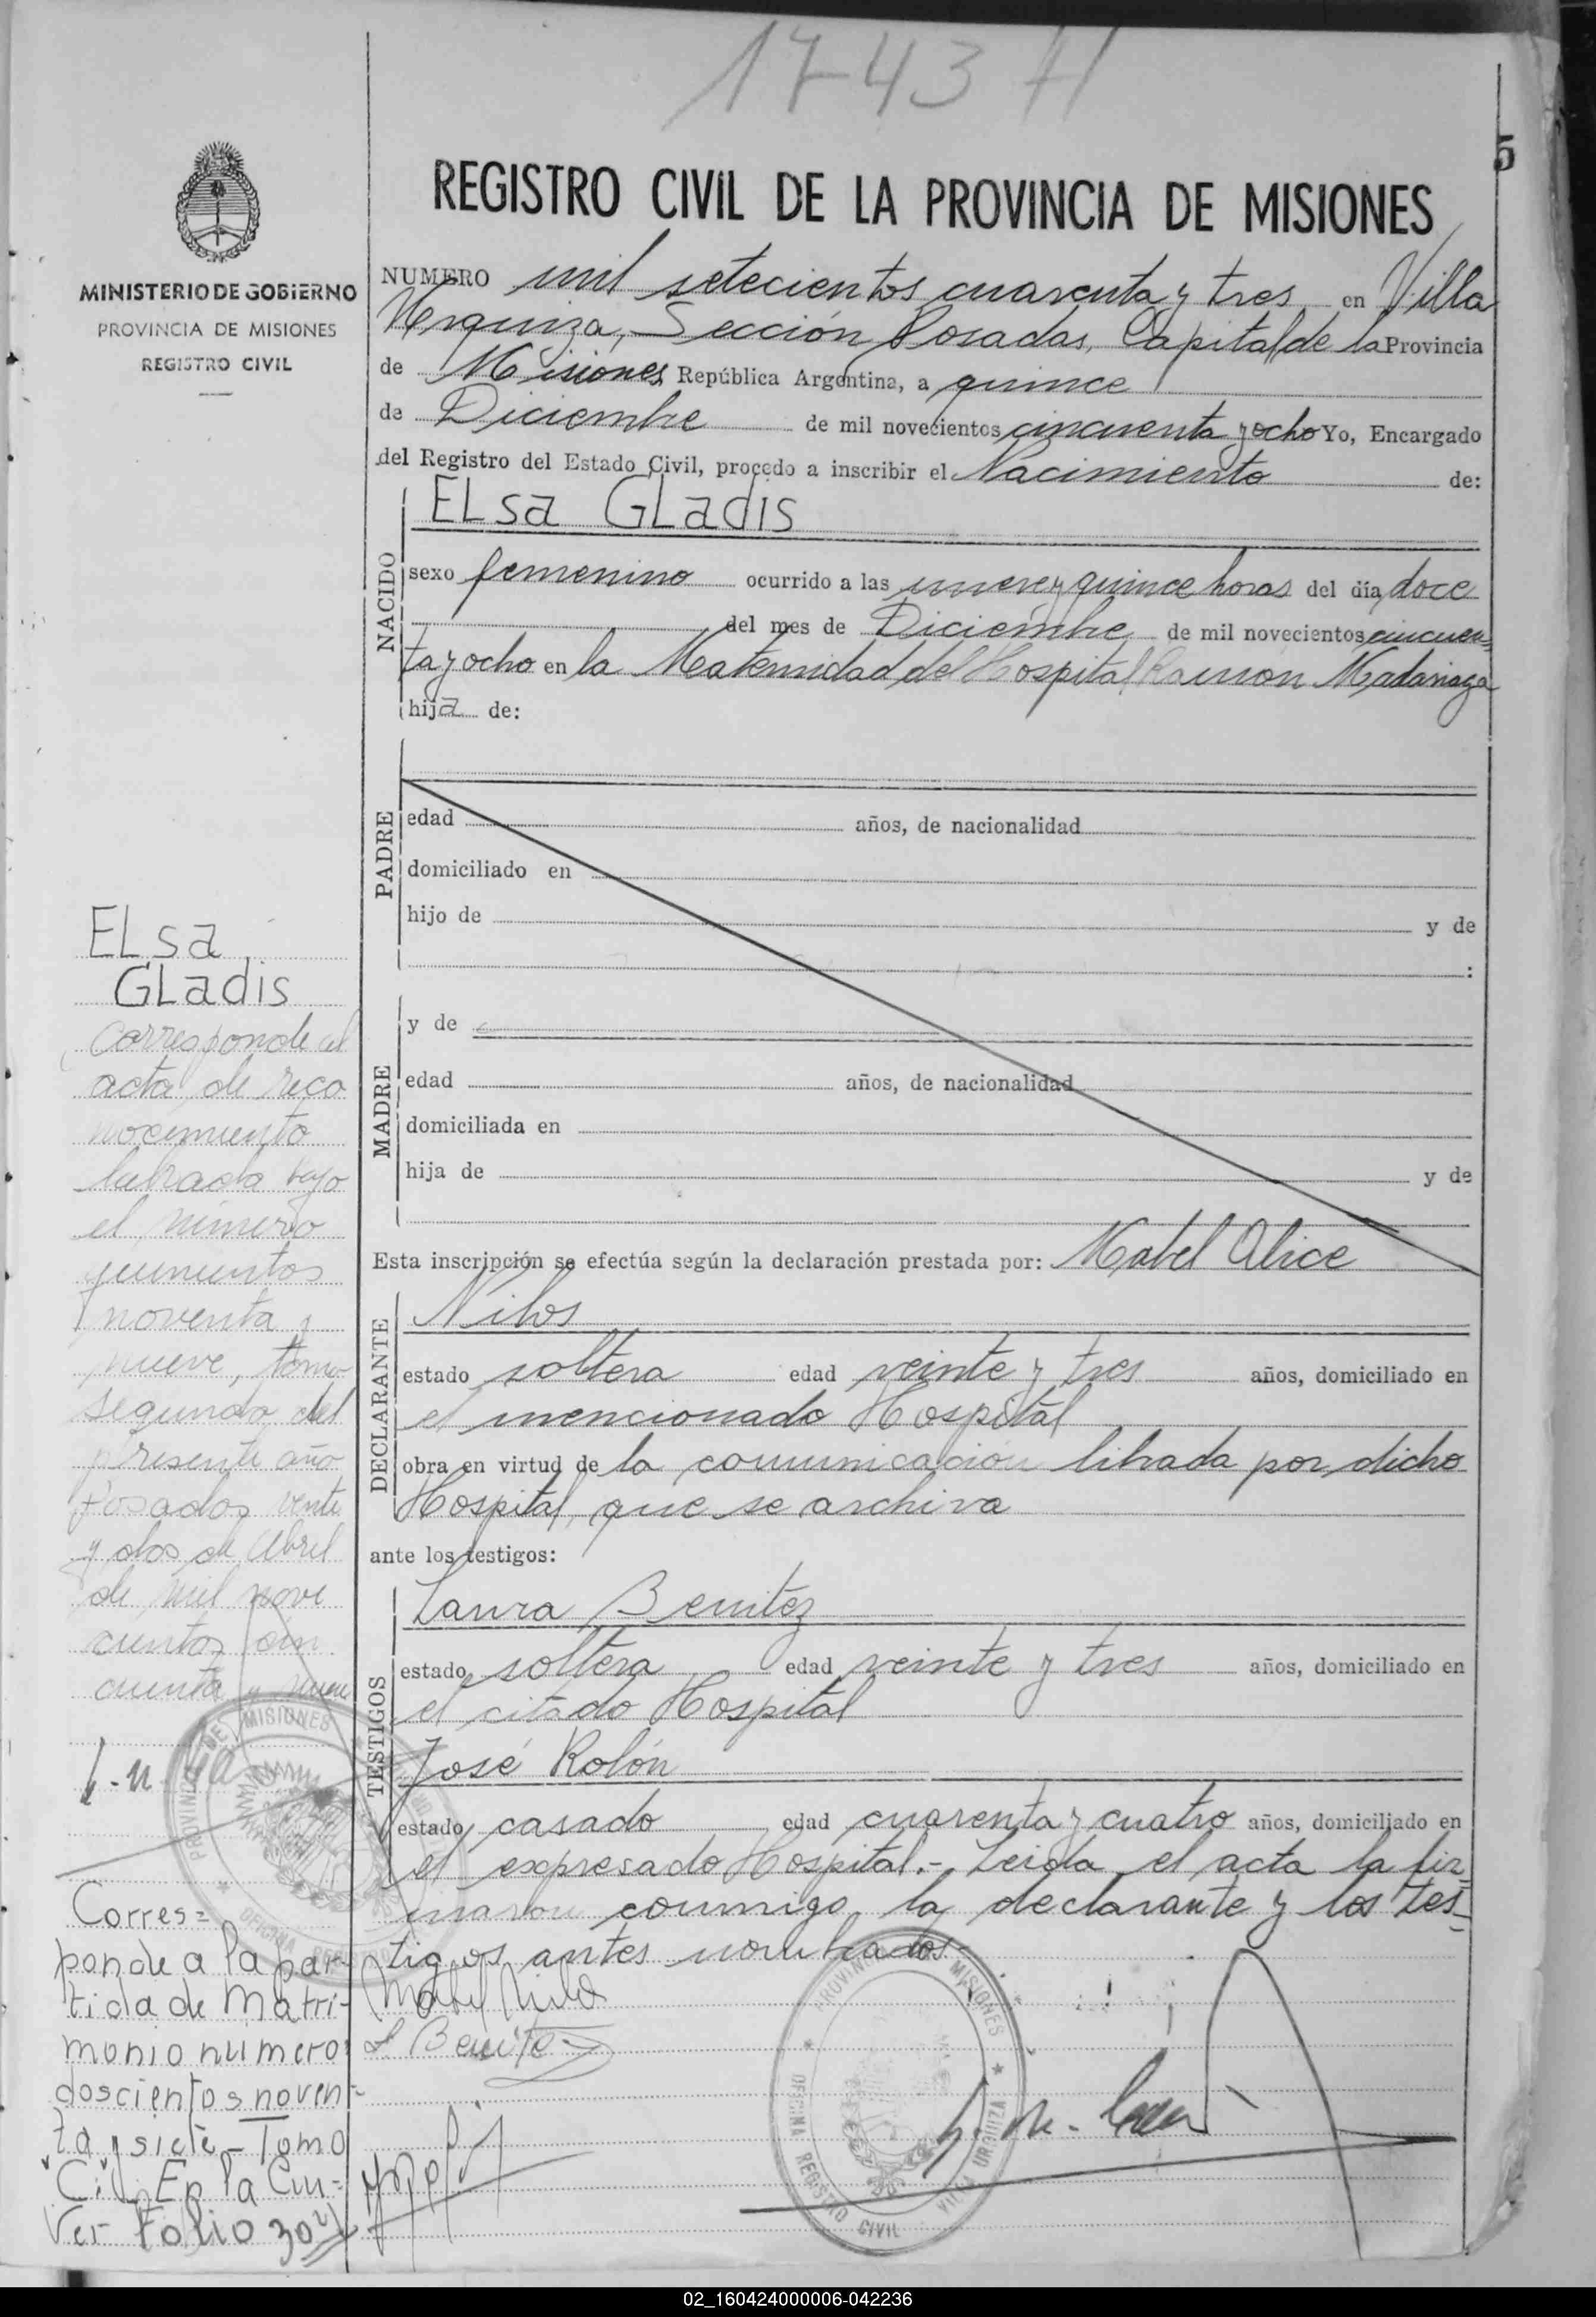 1743 H
5
REGISTRO CIVIL DE LA PROVINCIA DE MISIONES
MINISTERIO DE GOBIERNO
PROVINCIA DE MISIONES
REGISTRO CIVIL
NUMERO mil setecientos cuarenta y tres en Villa
Urquiza, Sección Posadas, Capital de la Provincia
de Misiones República Argentina, a quince
de Diciembre de mil novecientos cincuenta y ocho Yo, Encargado
del Registro del Estado Civil, procedo a inscribir el Nacimiento de:
ELsa GLadis
NACIDO
sexo femenino ocurrido a las nueve y quince horas del día doce
del mes de Diciembre de mil novecientos cincuen=
ta y ocho en la Maternidad del Hospital Ramón Madariaga
hija de:
PADRE
edad años, de nacionalidad
domiciliado en
hijo de y de
:
MADRE
y de
edad años, de nacionalidad
domiciliada en
hija de y de
Esta inscripción se efectúa según la declaración prestada por: Mabel Alice
DECLARANTE
Nilos
estado soltera edad veinte y tres años, domiciliado en
el mencionado Hospital
obra en virtud de la comunicación librada por dicho
Hospital, que se archiva
ante los testigos:
TESTIGOS
Laura Benitez
estado soltera edad veinte y tres años, domiciliado en
el citado Hospital
José Rolón
estado casado edad cuarenta y cuatro años, domiciliado en
el expresado Hospital.- Leida el acta la fir=
maron conmigo la declarante y los tes=
tigos antes nombrados.-
L Benitez
PROVINCIA DE MISIONES
OFICINA REGISTRO CIVIL
VILLA URQUIZA
ELsa
GLadis
Corresponde al
acta de reco
nocimiento
labrada bajo
el número
quinientos
noventa y
nueve, tomo
segundo del
presente año
Posadas veinte
y dos de Abril
de mil nove
cientos cin
cuenta y nueve
PROVINCIA DE MISIONES
OFICINA
Corres=
ponde a la par-
tida de Matri-
monio numero
doscientos noven-
ta y siete - Tomo
En la Ciu=
Ver Folio 302
02_160424000006-042236